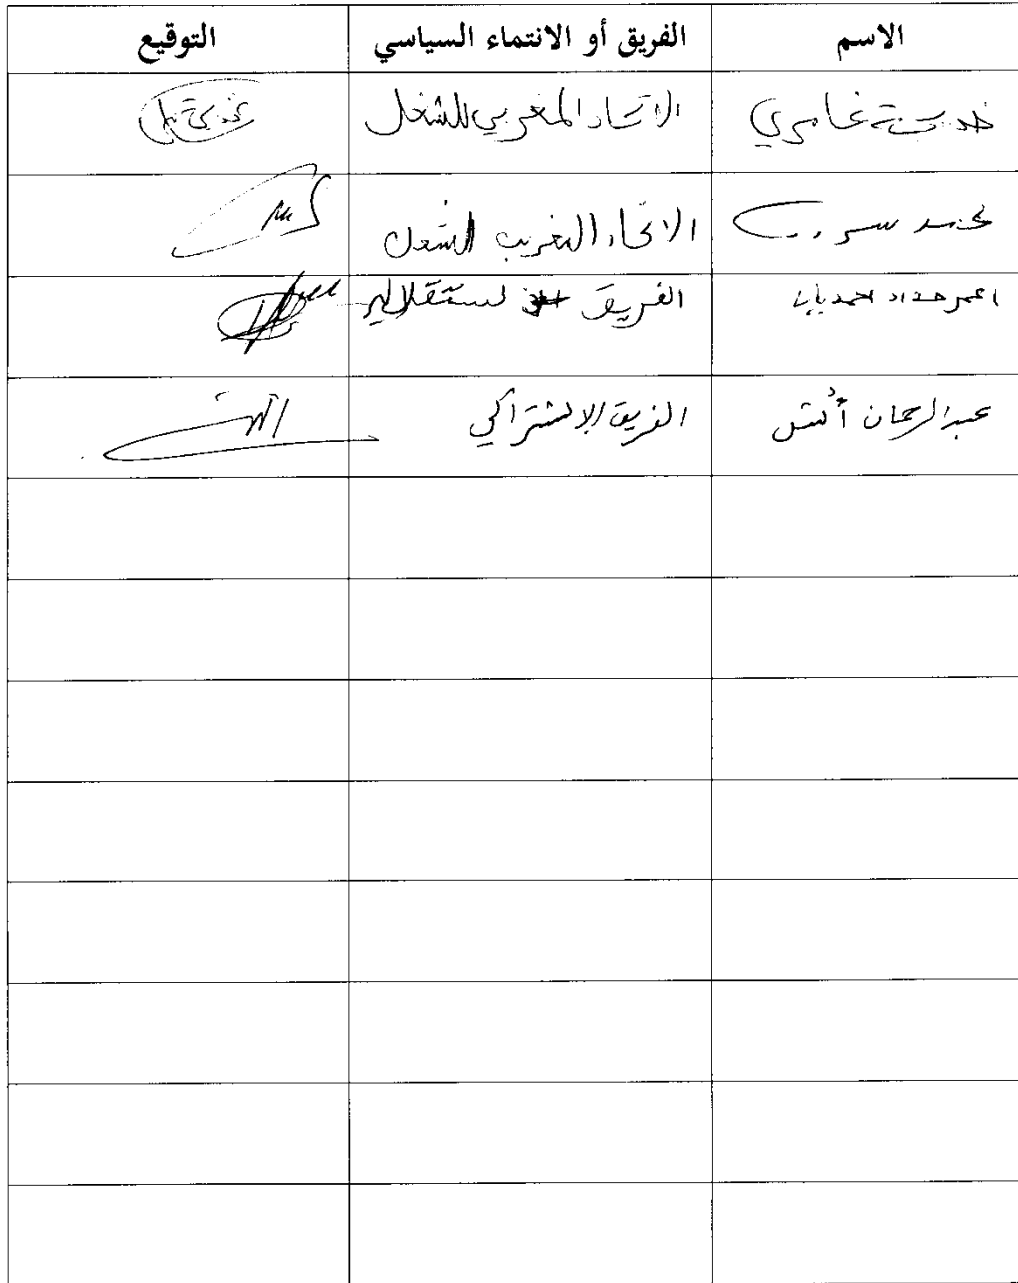 الاسم الفريق أو الانتماء السياسي التوقيع
خديجة غامري الاتحاد المغربي للشغل
محمد الاتحاد المغربي للشغل
اعمر حداد الفريق
عبد الرحمان الفريق الاشتراكي